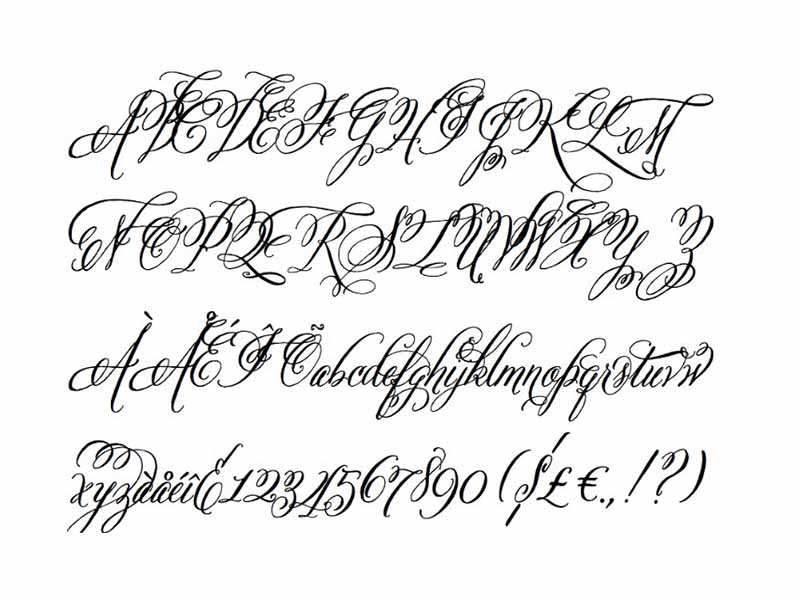 ABCDEFGHIJKLM
NOPQRSTUVWXYZ
ÀÅÉÎÕabcdefghijklmnopqrstuvw
xyzàåéîõ1234567890($£€.,!?)